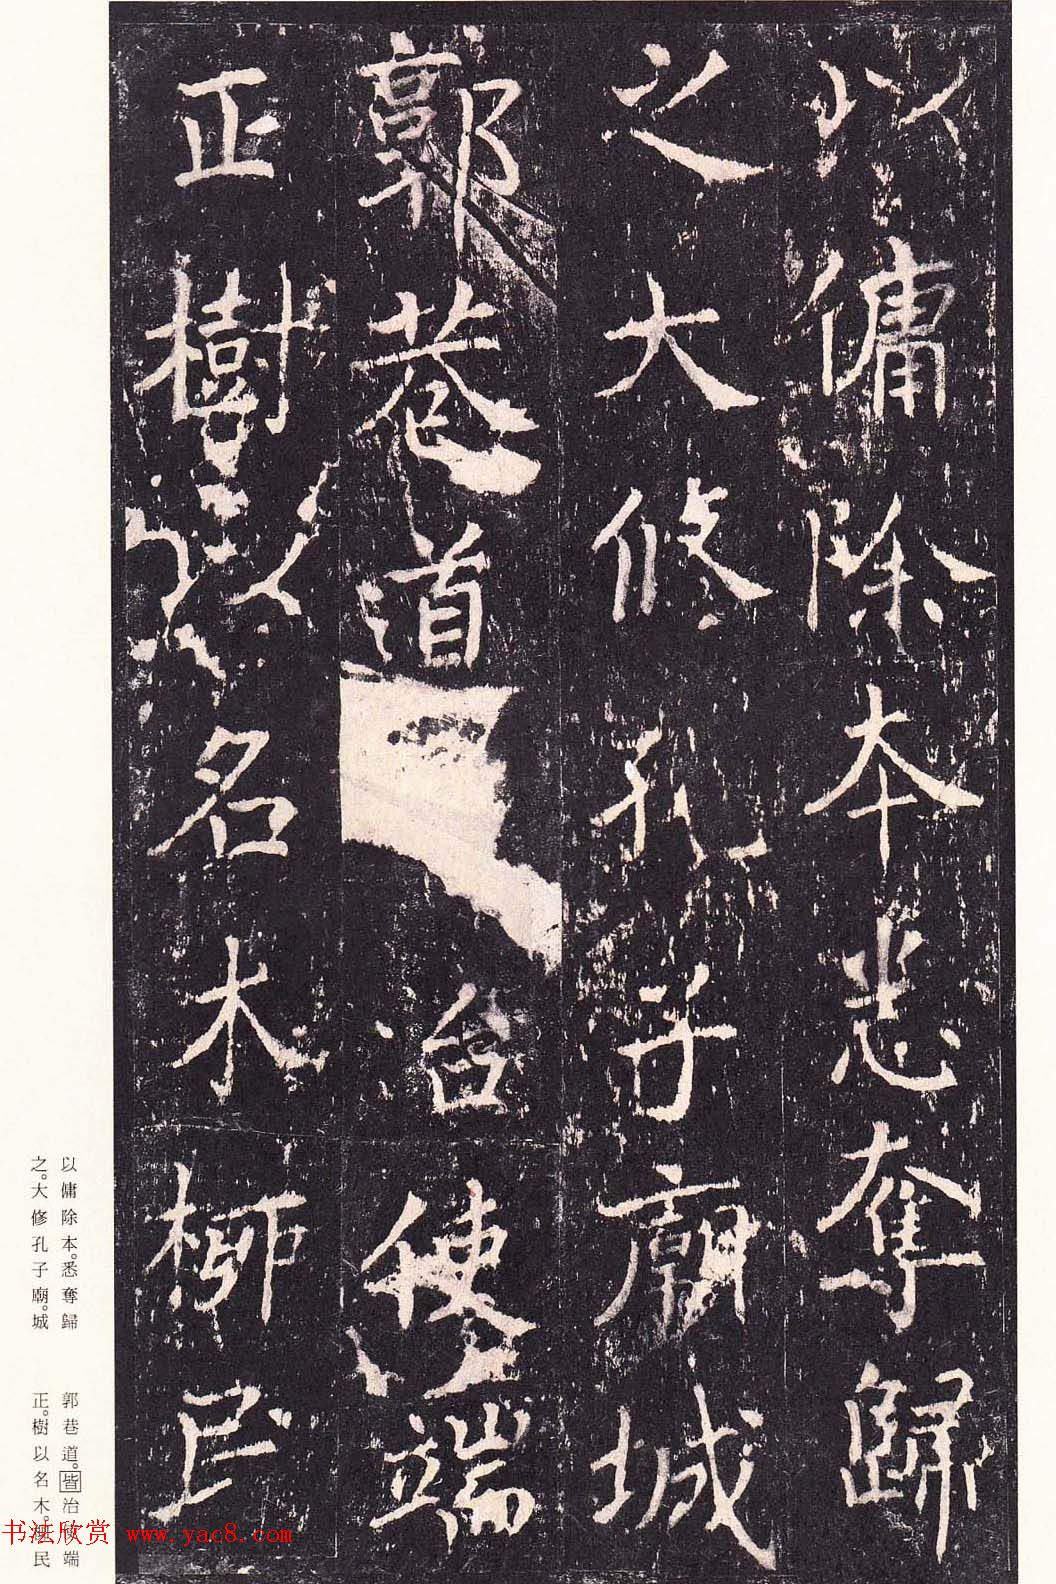 以傭除本悉奪歸
之大修孔子廟城
郭巷道治使端
正樹以名木柳民
以傭除本。悉奪歸
之。大修孔子廟。城
郭巷道。皆治使端
正。樹以名木。柳民
书法欣赏 www.yac8.com